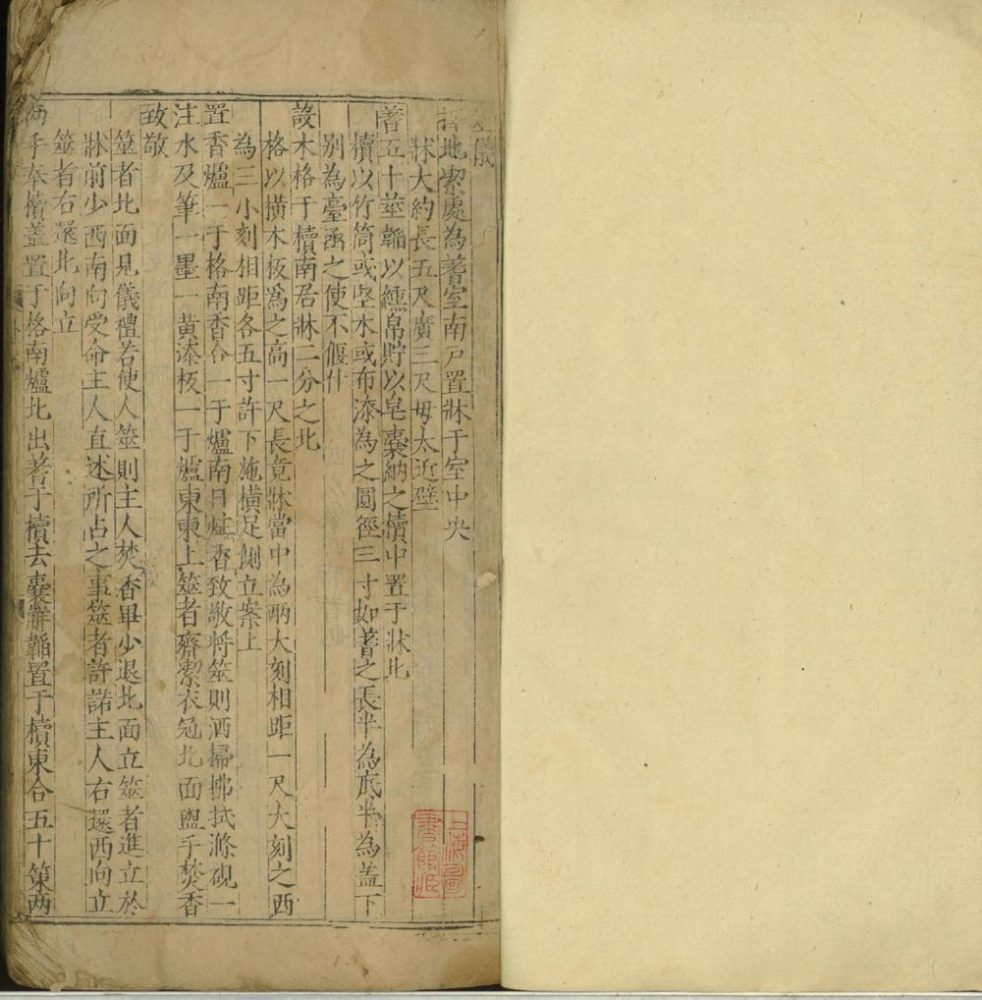 儀
擇地潔處為蓍室南戶置牀于室中央
牀大約長五尺廣三尺毋太近壁
蓍五十莖韜以纁帛貯以皂囊納之櫝中置于牀北
櫝以竹筒或堅木或布漆為之圓徑三寸如蓍之長半為底半為蓋下
別為臺函之使不偃仆
設木格于櫝南居牀二分之北
格以橫木板為之高一尺長竟牀當中為兩大刻相距一尺大刻之西
為三小刻相距各五寸許下施橫足側立案上
置香爐一于格南香合一于爐南日炷香致敬將筮則洒掃拂拭滌硯一
注水及筆一墨一黃漆板一于爐東東上筮者齊潔衣冠北面盥手焚香
致敬
筮者北面見儀禮若使人筮則主人焚香畢少退北面立筮者進立於
牀前少西南向受命主人直述所占之事筮者許諾主人右還西向立
筮者右還北向立
兩手奉櫝蓋置于格南爐北出蓍于櫝去囊解韜置于櫝東合五十策兩
上海圖
書館藏